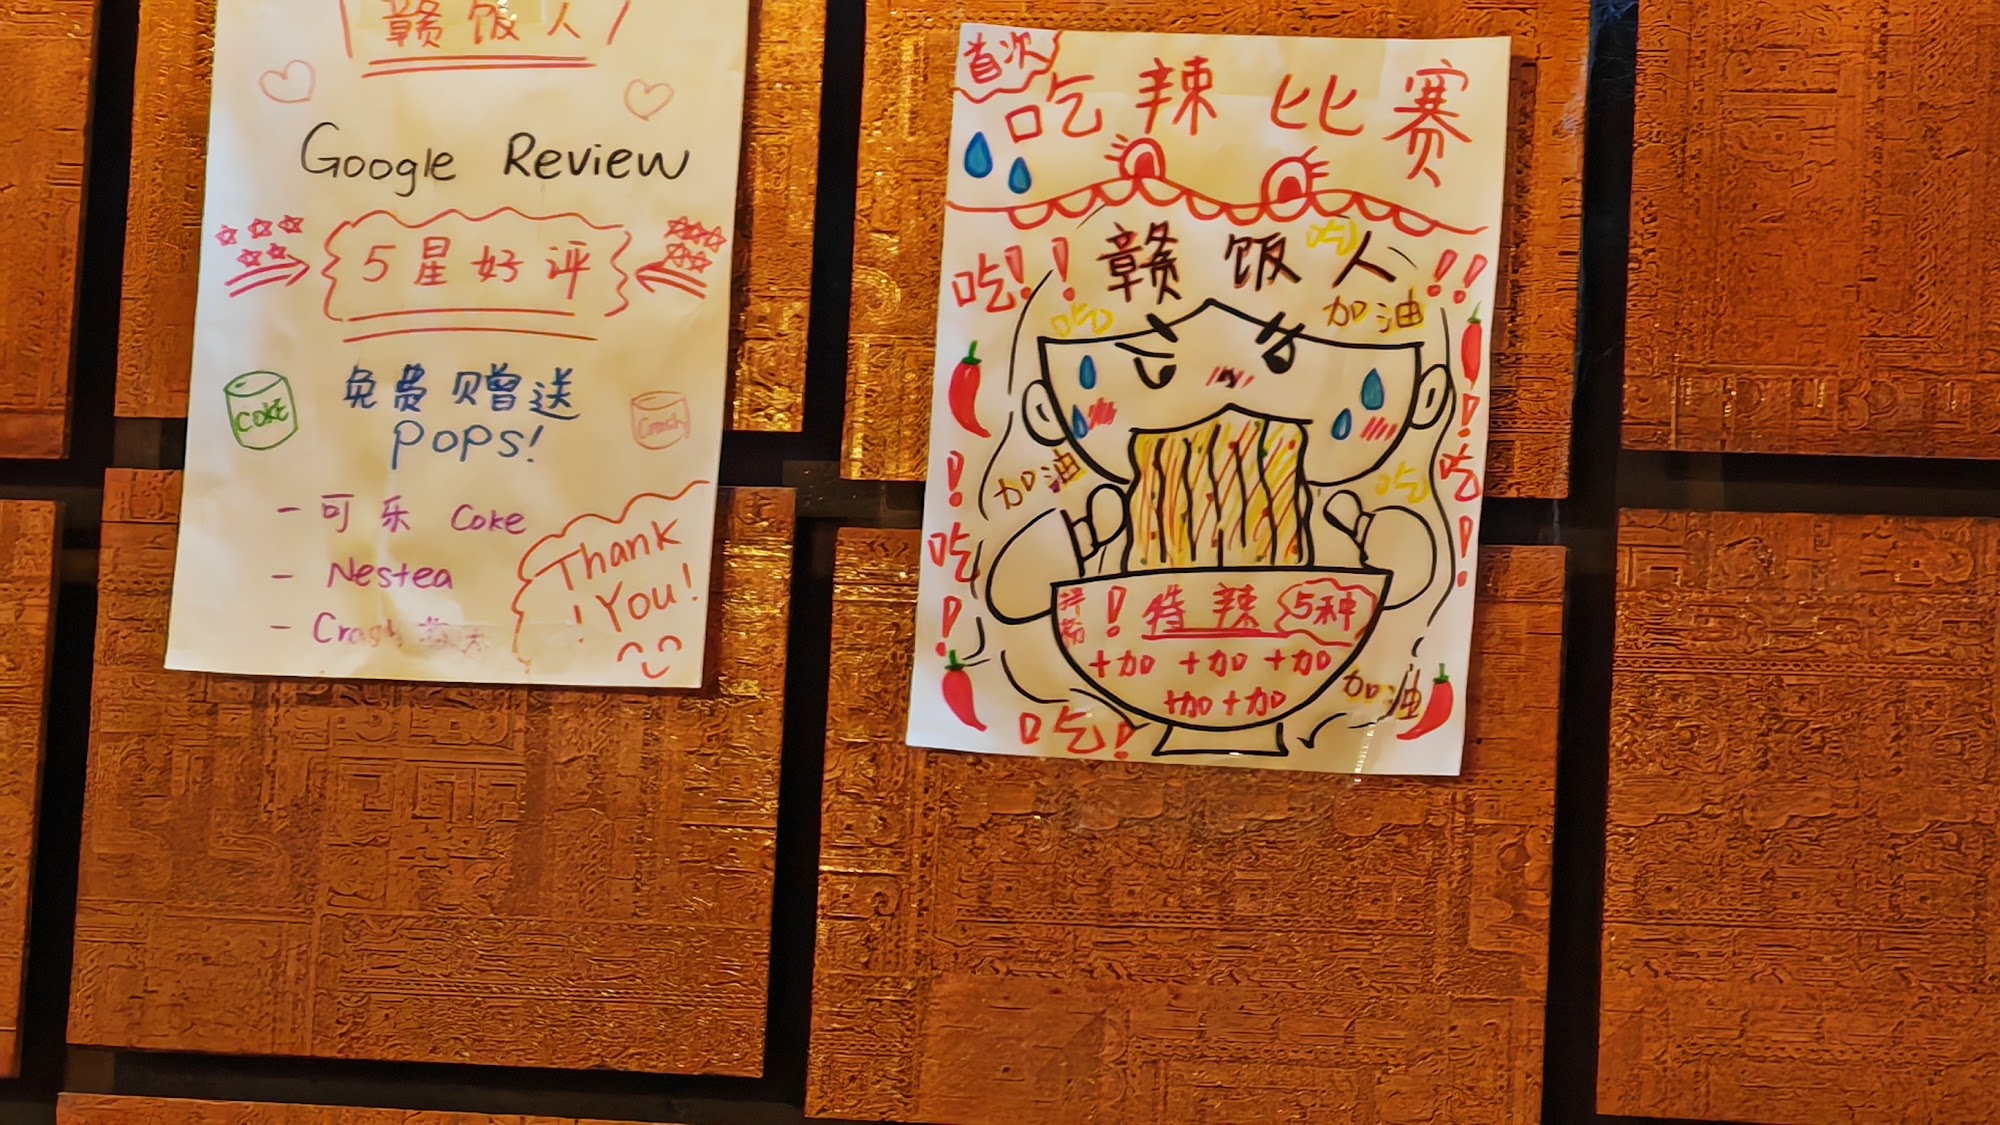 赣饭人
Google Review
5星好评
免费赠送
pops!
COKE
Crush
- 可乐 Coke
- Nestea
- Crush
Thank
You!
首次
吃辣比赛
赣饭人
吃!!
吃
!!
吃
加油
加油
吃
!吃!
!吃!
拌粉
!特辣 5种
+加 +加 +加
+加 +加
加油
吃!